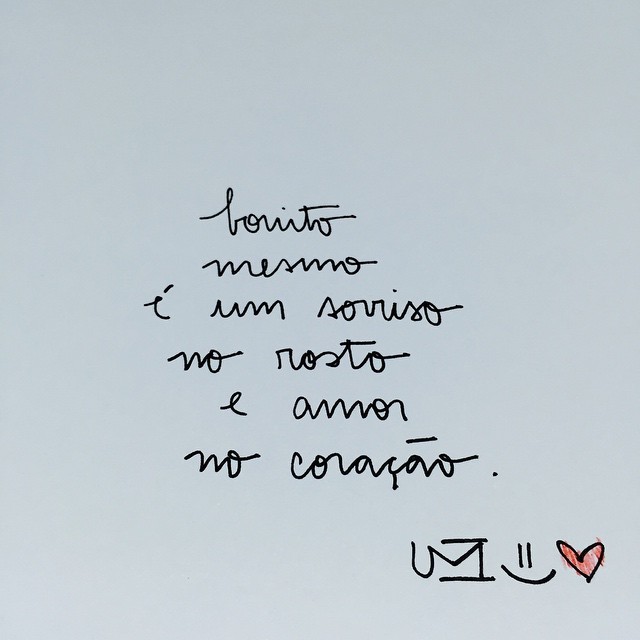 bonito
mesmo
é um sorriso
no rosto
e amor
no coração.